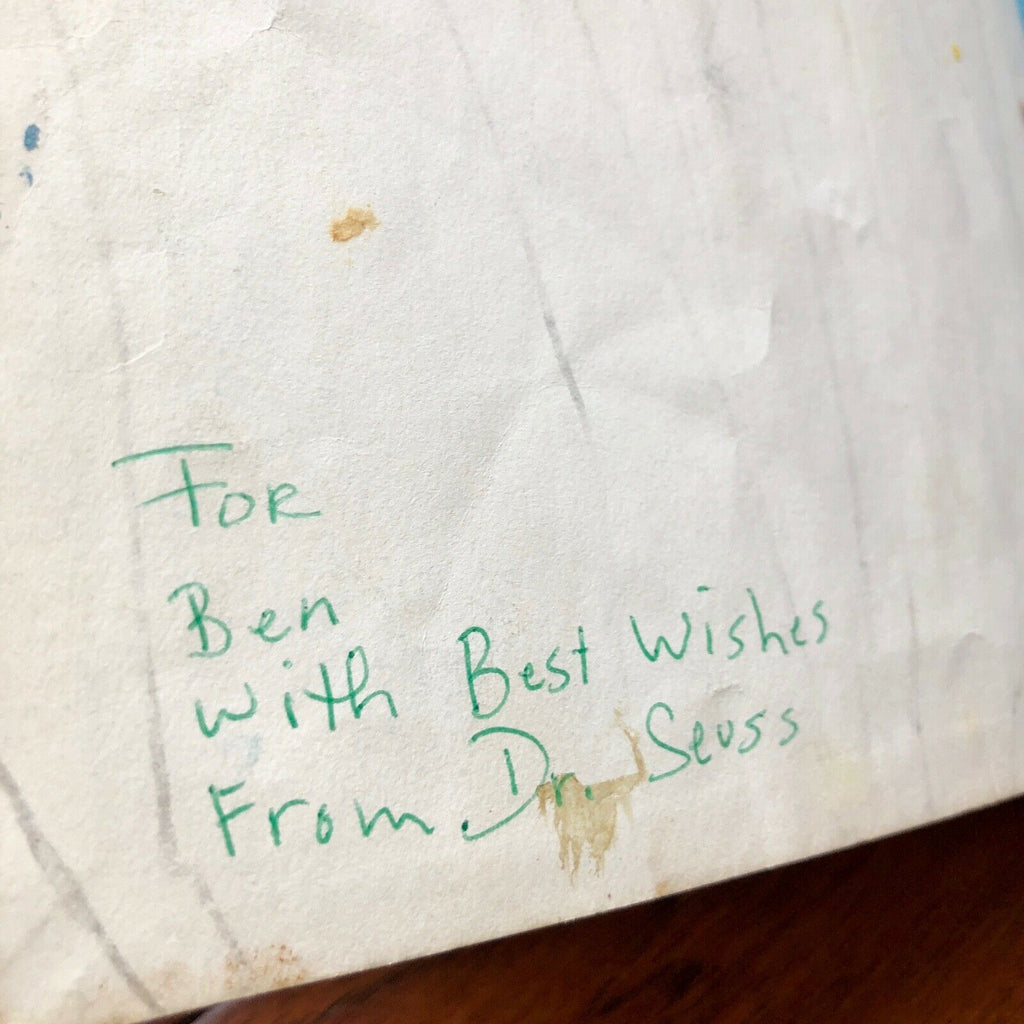 For
Ben
with Best Wishes
From Dr. Seuss